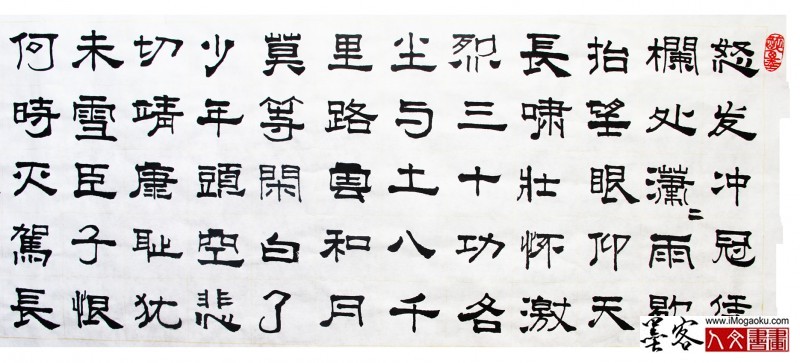 怒发冲冠凭
欄处瀟〻雨歇
抬望眼仰天
長嘯壮怀激
烈三十功名
尘与土八千
里路雲和月
莫等閑白了
少年頭空悲
切靖康耻犹
未雪臣子恨
何時灭駕長
墨客
www.iMogaoku.com
人文書畫